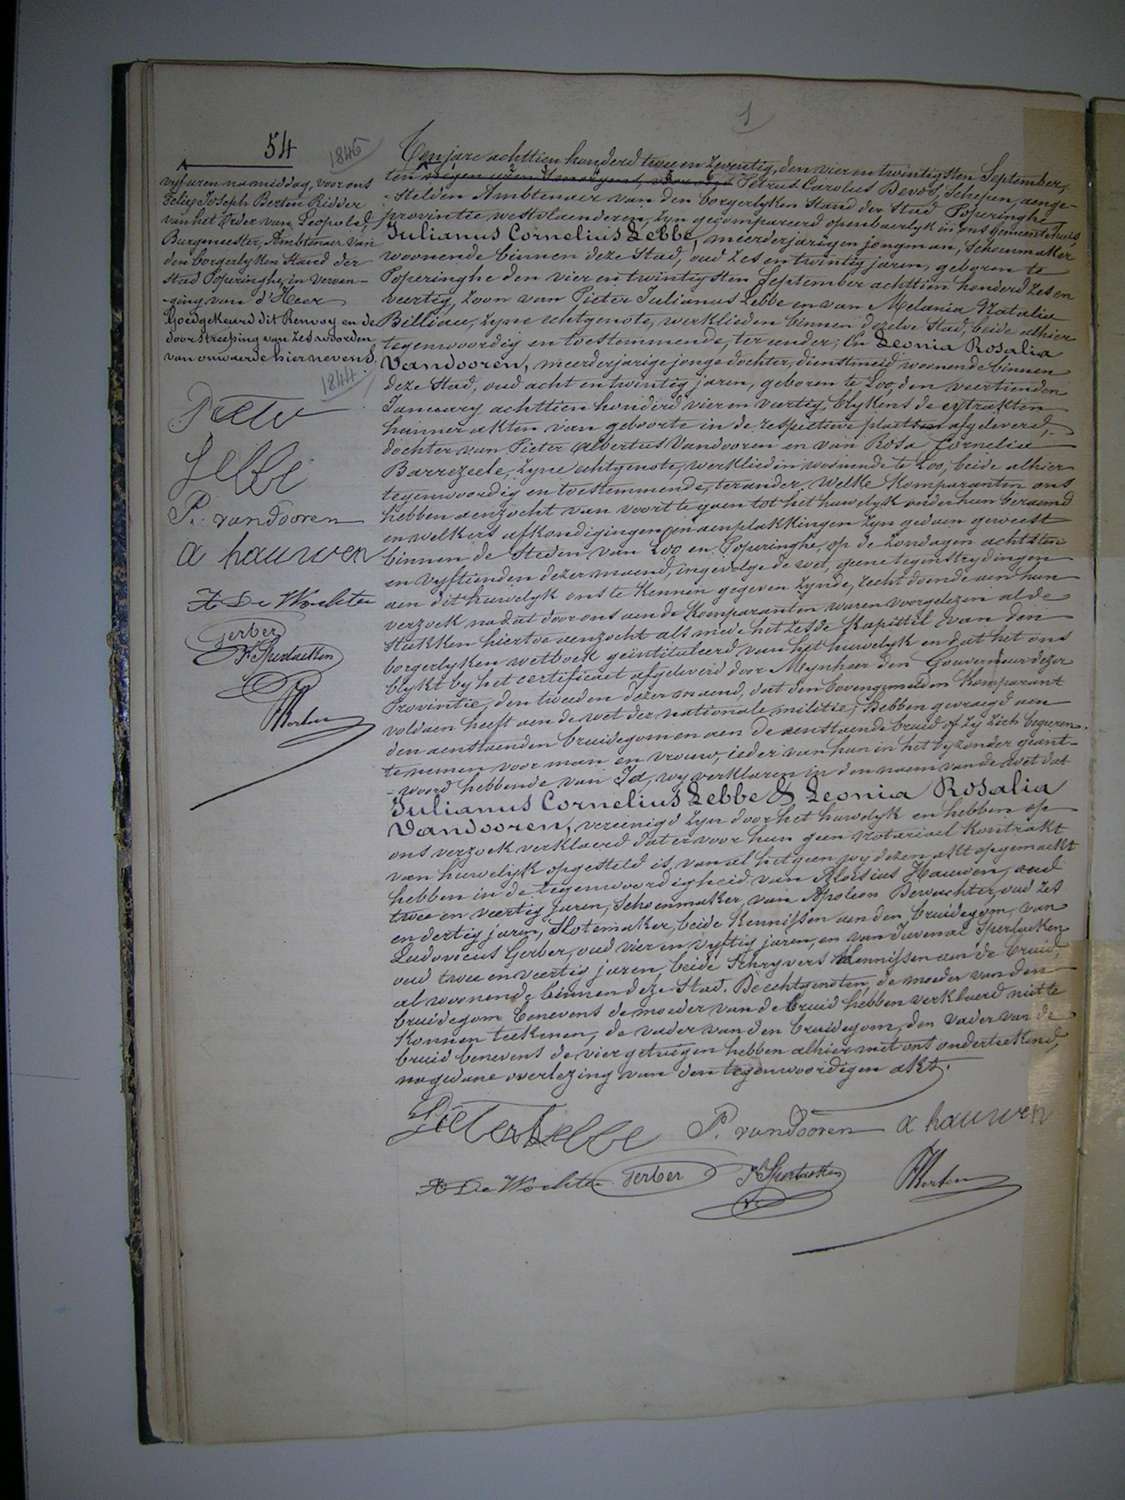 1
54
1846
vijf uren namiddag, voor ons
Felix Joseph Berten Ridder
van het Order van Leopold,
Burgmeester, Ambtenaer van
den borgerlyken Stand der
stad Poperinghe, in vervan-
-ging van d'Heer
Goedgekeurd dit Renvoy en de
doorstreeping van zes woorden
van onwaerde hiernevens.
1844
Pieter
Lebbe
P. vandooren
a hauwen
A De Wachter
Gerber
Sperlaeken
Berten
Ten jare achttien honderd twee en zeventig, den vier en twintigsten September,
ten negen uren Petrus Carolus Devos, Schepen, aenge-
-stelden Ambtenaer van den borgerlyken Stand der Stad Poperinghe
provintie westvlaenderen, zyn gecompareerd openbaerlyk in ons gemeentehuis,
Julianus Cornelius Lebbe, meerderjarigen jongman, schoenmaker
woonende binnen deze Stad, oud zes en twintig jaren, geboren te
Poperinghe den vier en twintigsten September achttien honderd zes en
veertig, zoon van Pieter Julianus Lebbe en van Melania Natalia
Billiau, zyne echtgenote, werklieden binnen dezelve Stad, beide alhier
tegenwoordig en toestemmende, ter ander; En Leonia Rosalia
Vandooren, meerderjarige jonge dochter, dienstmeid woonende binnen
deze Stad, oud acht en twintig jaren, geboren te Loo, den veertienden
January achttien honderd vier en veertig, blykens de extrakten
hunner akten van geboorte in de respetieve plaetsen afgeleverd,
dochter van Pieter Albertus Vandooren en van Rosa Cornelia
Barrezeele, zyne echtgenote, werklieden woonende te Loo, beide alhier
tegenwoordig en toestemmende, ter ander, Welke Komparanten ons
hebben aenzocht van voort te gaen tot het huwelyk onder hun beraemd
en welkers afkondigingen en aenplakkingen zyn gedaen geweest
binnen de Steden van Loo en Poperinghe, op de zondagen achtsten
en vyftienden dezer maend, ingevolge de wet, geene tegenstrydingen
aen dit huwelyk ons te kennen gegeven zynde, recht doende aen hun
verzoek na dat door ons aen de Komparanten waren voorgelezen al de
stukken hiertoe aenzocht als mede het zesde kapittel van den
borgerlyken wetboek geintituleerd van het huwelyk en dat het ons
blykt by het certificaet afgeleverd door Mynheer den Gouverneur dezer
Provintie, den tweeden dezer maend, dat den bovengemelden Komparant
voldaen heeft aen de wet der nationale militie; Hebben gevraegd aen
den aenstaenden bruidegom en aen de aenstaende bruid of zy zich begeeren
te nemen voor man en vrouw, ieder van hun in het byzonder geant-
-woord hebbende van Ja, wy verklaren in den naem van de wet dat
Julianus Cornelius Lebbe & Leonia Rosalia
Vandooren, vereenigd zyn door het huwelyk en hebben op
ons verzoek verklaerd dat er voor hun geen notariael kontrakt
van huwelyk opgesteld is, van al hetgeen wy dezen akt opgemaekt
hebben in de tegenwoordigheid van Aloisius Hauwen, oud
twee en veertig jaren, schoenmaker, van Apoleon Dewachter, oud zes
en dertig jaren, slotemaker, beide kennissen aen den bruidegom, van
Ludovicus Gerber, oud vier en vyftig jaren, en van Juvenal Sperlaeken
oud twee en veertig jaren, beide schryvers kennissen aen de bruid,
al woonende binnen deze Stad. De echtgenoten, de moeder van den
bruidegom benevens de moeder van de bruid hebben verklaerd niet te
konnen teekenen, de vader van den bruidegom, den vader van de
bruid benevens de vier getuigen hebben alhier met ons onderteekend,
na gedane overlezing van den tegenwoordigen akt.
Pieter Lebbe P. vandooren a hauwen
A De Wachter Gerber Sperlaeken Berten